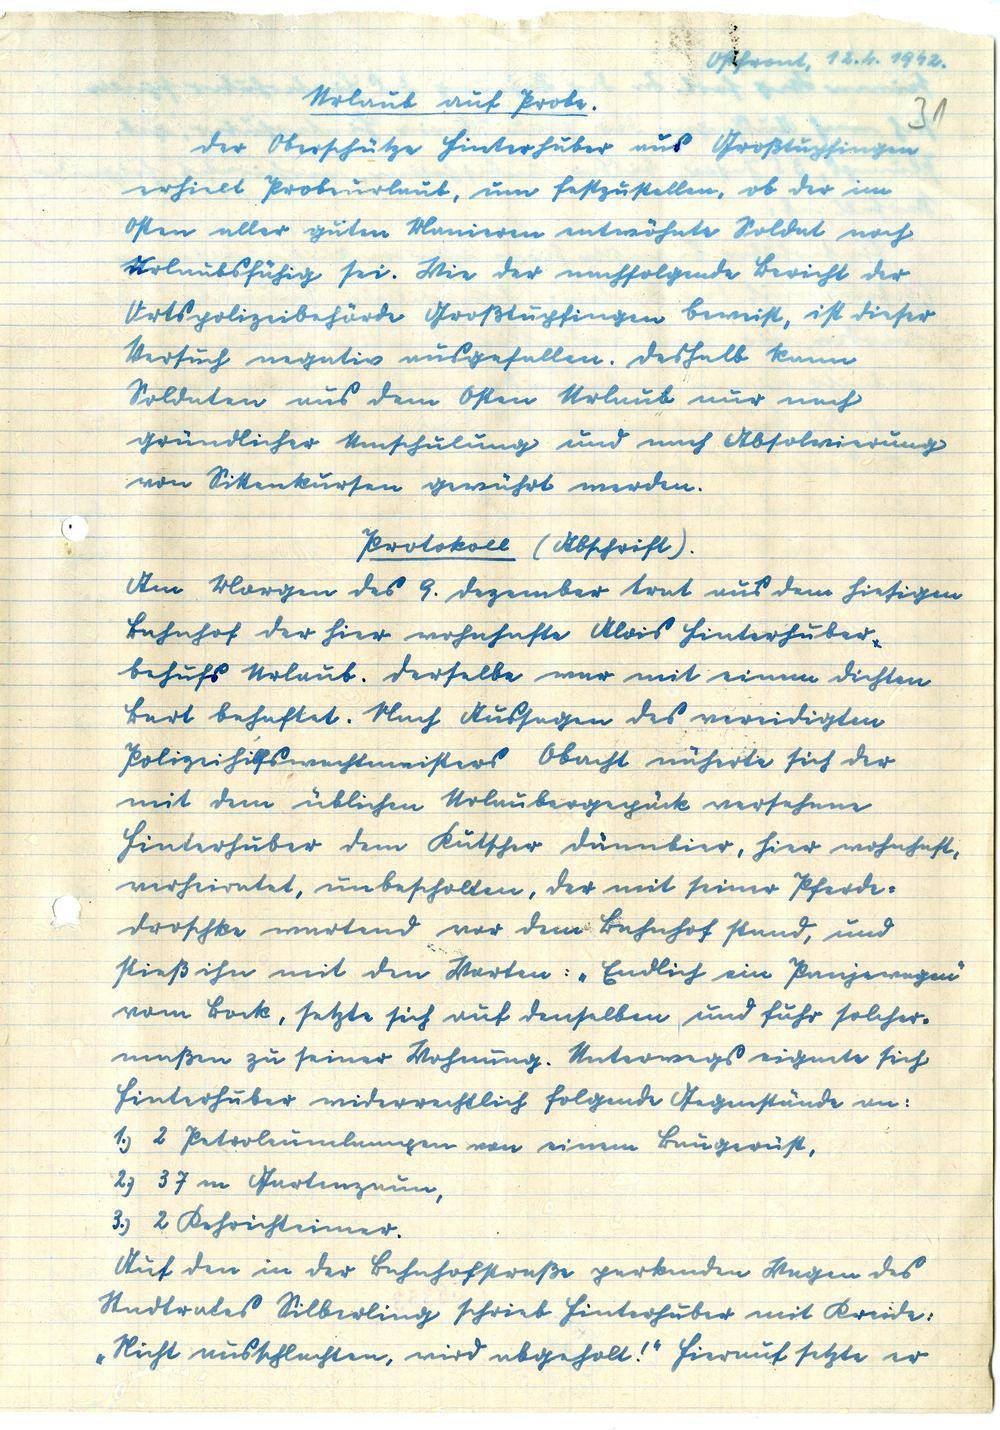 Ostfront, 12.4. 1942.
31
Urlaub auf Probe.
Der Oberschütze Hinterhuber aus Großtupfingen
erhielt Probeurlaub, um festzustellen, ob der im
Osten aller guten Manieren entwöhnte Soldat noch
Urlaubsfähig sei. Wie der nachfolgende Bericht der
Ortspolizeibehörde Großtupfingen beweist, ist dieser
Versuch negativ ausgefallen. Deshalb kann
Soldaten aus dem Osten Urlaub nur nach
gründlicher Umschulung und nach Absolvierung
von Sittenkursen gewährt werden.
Protokoll (Abschrift).
Am Morgen des 9. Dezember trat aus dem hiesigen
Bahnhof der hier wohnhafte Alois Hinterhuber,
behufs Urlaub. Derselbe war mit einem dichten
Bart behaftet. Nach Aussagen des vereidigten
Polizeihilfswachtmeisters Obacht näherte sich der
mit dem üblichen Urlaubergepäck versehene
Hinterhuber dem Kutscher Dünnbier, hier wohnhaft,
verheiratet, unbescholten, der mit seiner Pferde=
droschke wartend vor dem Bahnhof stand, und
stieß ihn mit den Worten: „Endlich ein Panjewagen"
vom Bock, setzte sich auf denselben und fuhr solcher=
maßen zu seiner Wohnung. Unterwegs eignete sich
Hinterhuber widerrechtlich folgende Gegenstände an:
1.) 2 Petroleumlampen von einem Baugerüst,
2.) 37 m Gartenzaun,
3.) 2 Kehrichteimer.
Auf den in der Bahnhofstraße parkenden Wagen des
Stadtrates Silberling schrieb Hinterhuber mit Kreide:
„Nicht ausschlachten, wird abgeholt!" Hierauf setzte er